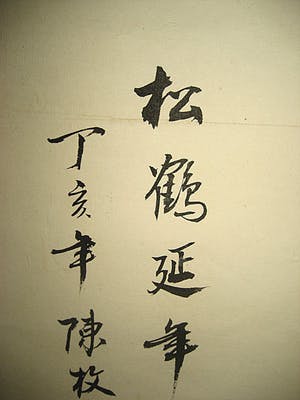 松鶴延年
丁亥年 陳枚